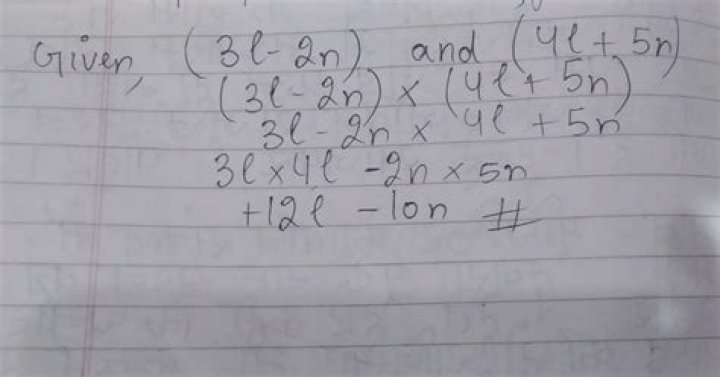 Given, (3l - 2n) and (4l + 5n)
(3l - 2n) × (4l + 5n)
3l - 2n × 4l + 5n
3l × 4l - 2n × 5n
+12l - 10n #